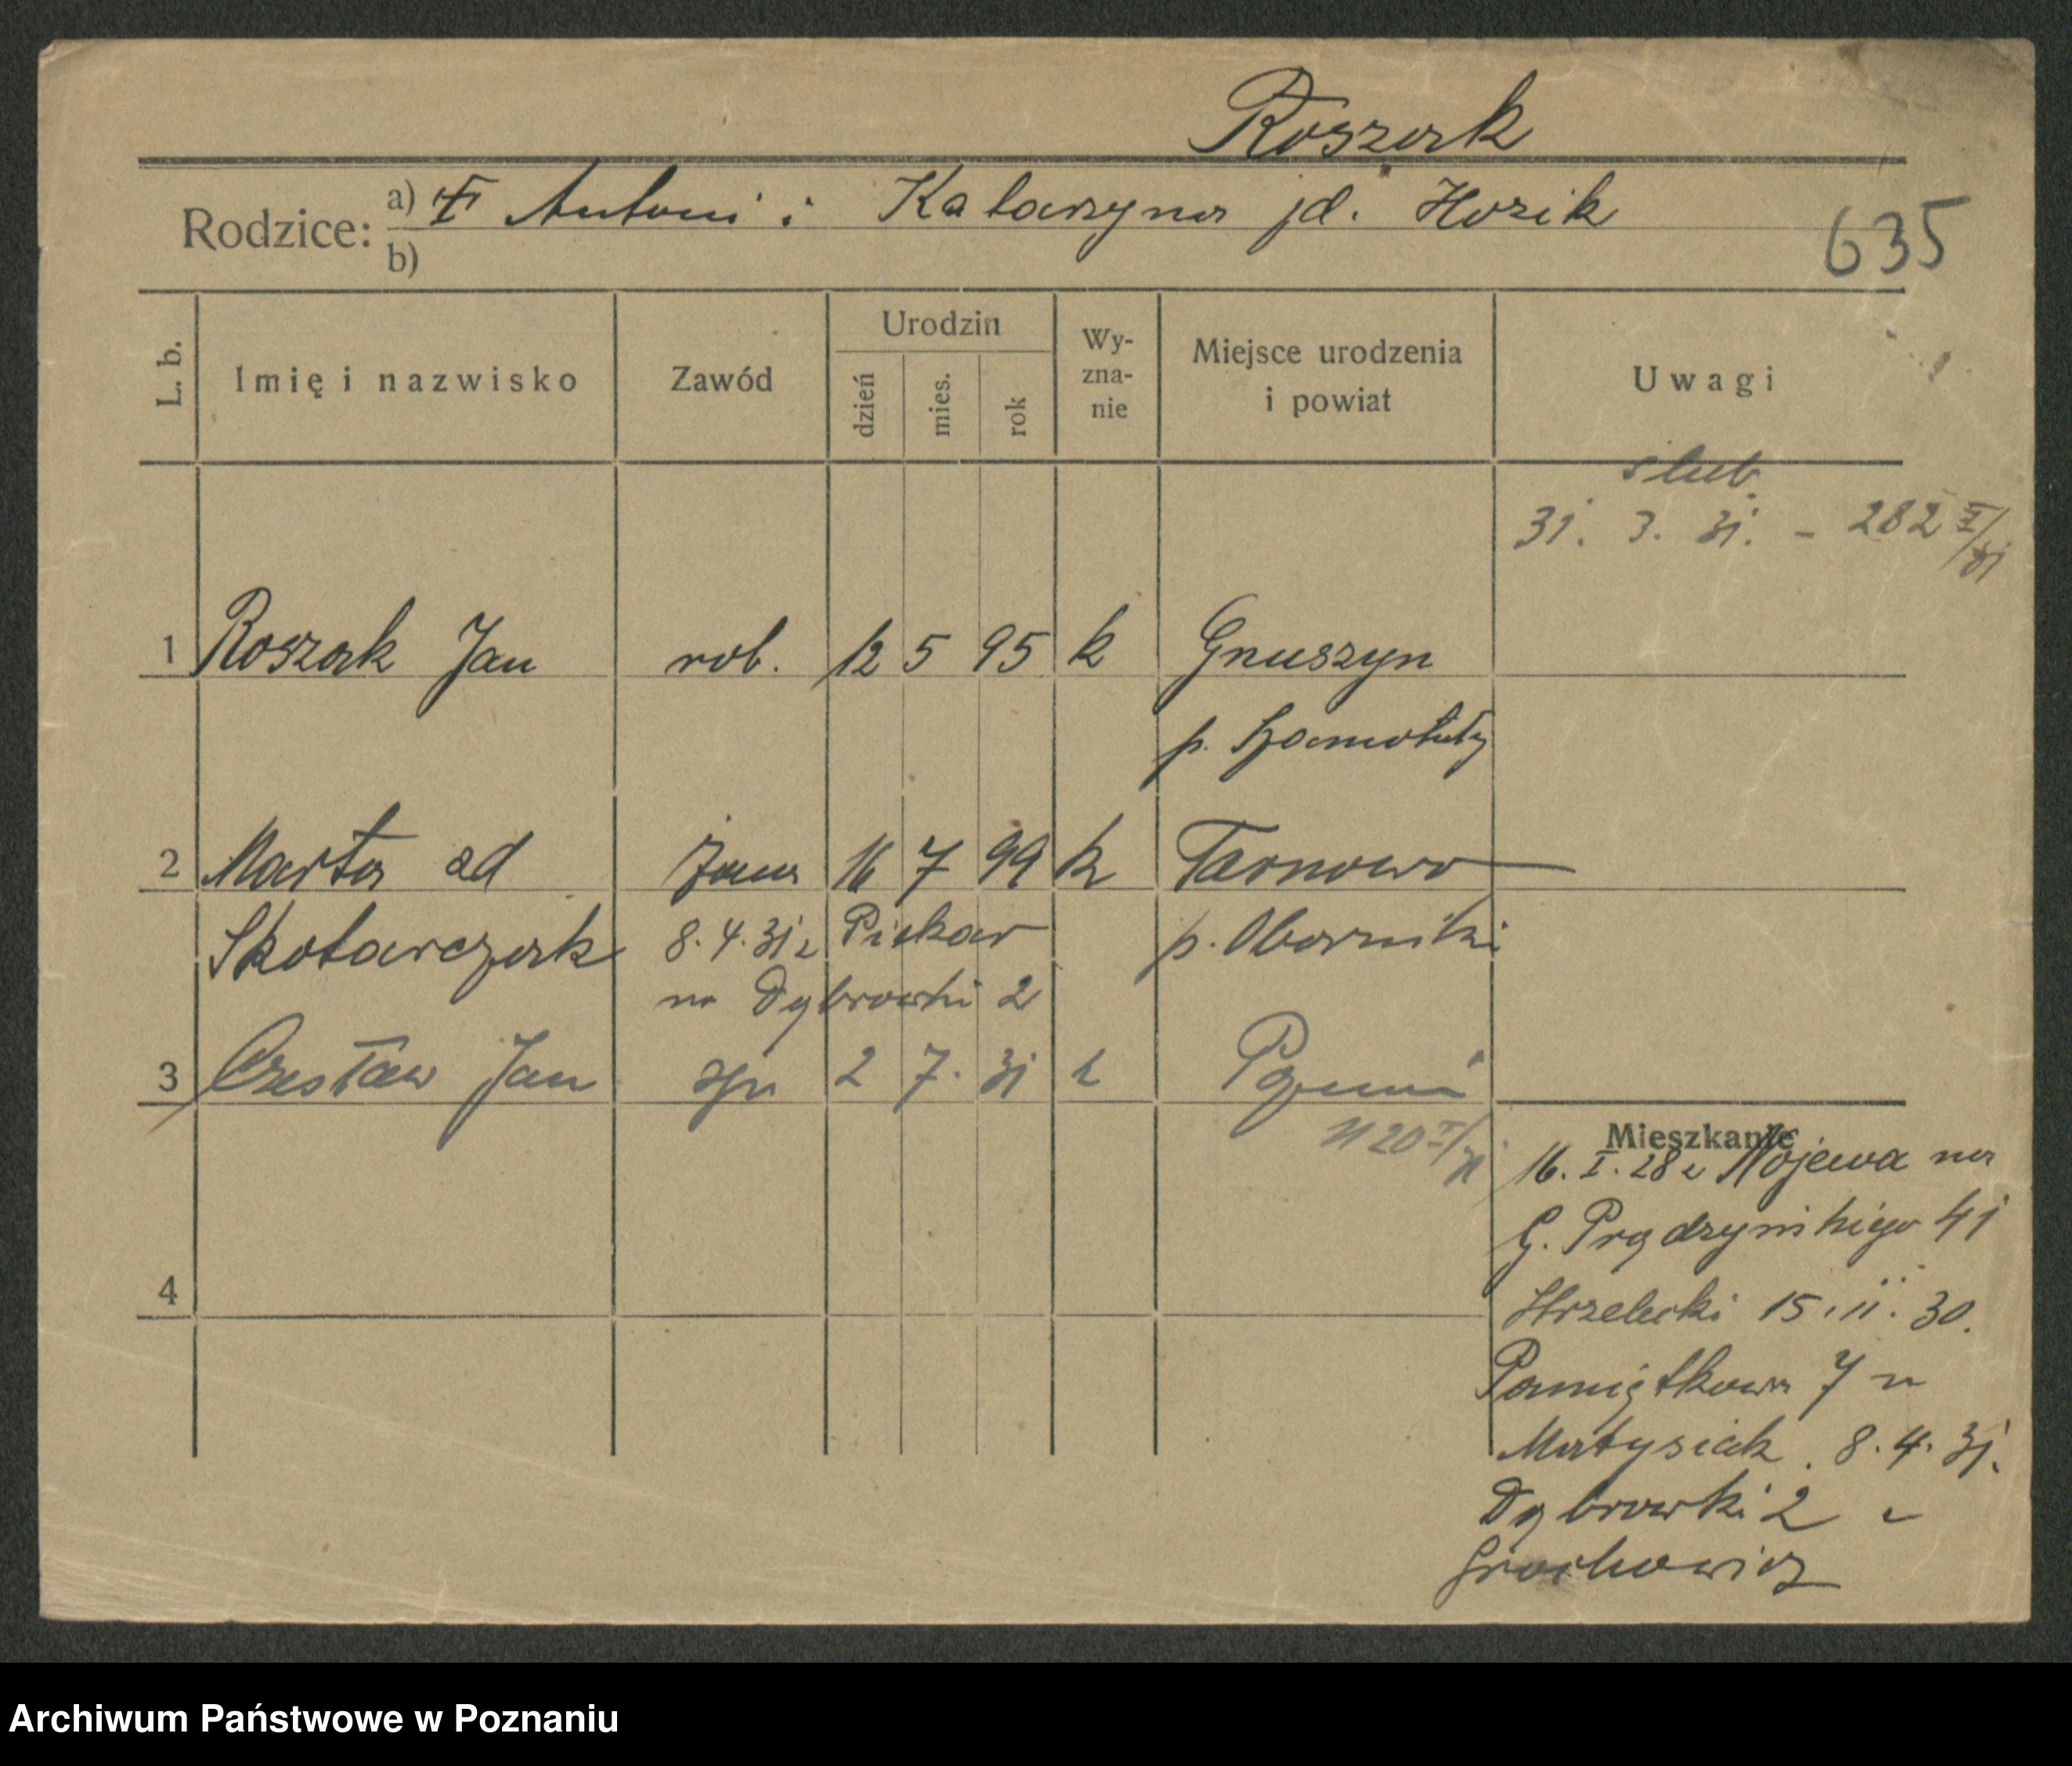 Roszak
Rodzice: a) Antoni i Katarzyna
b)
635
L. b.
Imię i nazwisko
Zawód
Urodzin
dzień
mies.
rok
Wy-
zna-
nie
Miejsce urodzenia
i powiat
Uwagi
ślub
31. 3. 31. - 282 II/31
1 Roszak Jan rob. 12 5 95 k Gnuszyn
p. Szamotuły
2 Marta od żona 16 7 99 k Tarnowo
Skotarczak 8.4.31 z Piekar p. Oborniki
na Dąbrowki 2
3 Czesław Jan syn 2 7. 31 k Poznań
1120 II/31
4
Mieszkanie
16. I. 28 z Nojewa na
G. Prądzyńskiego 41
Strzelecki 15.11.30.
Pamiątkowa 7 u
Matysiak. 8.4.31.
Dąbrowki 2 u
Grochowicz
Archiwum Państwowe w Poznaniu